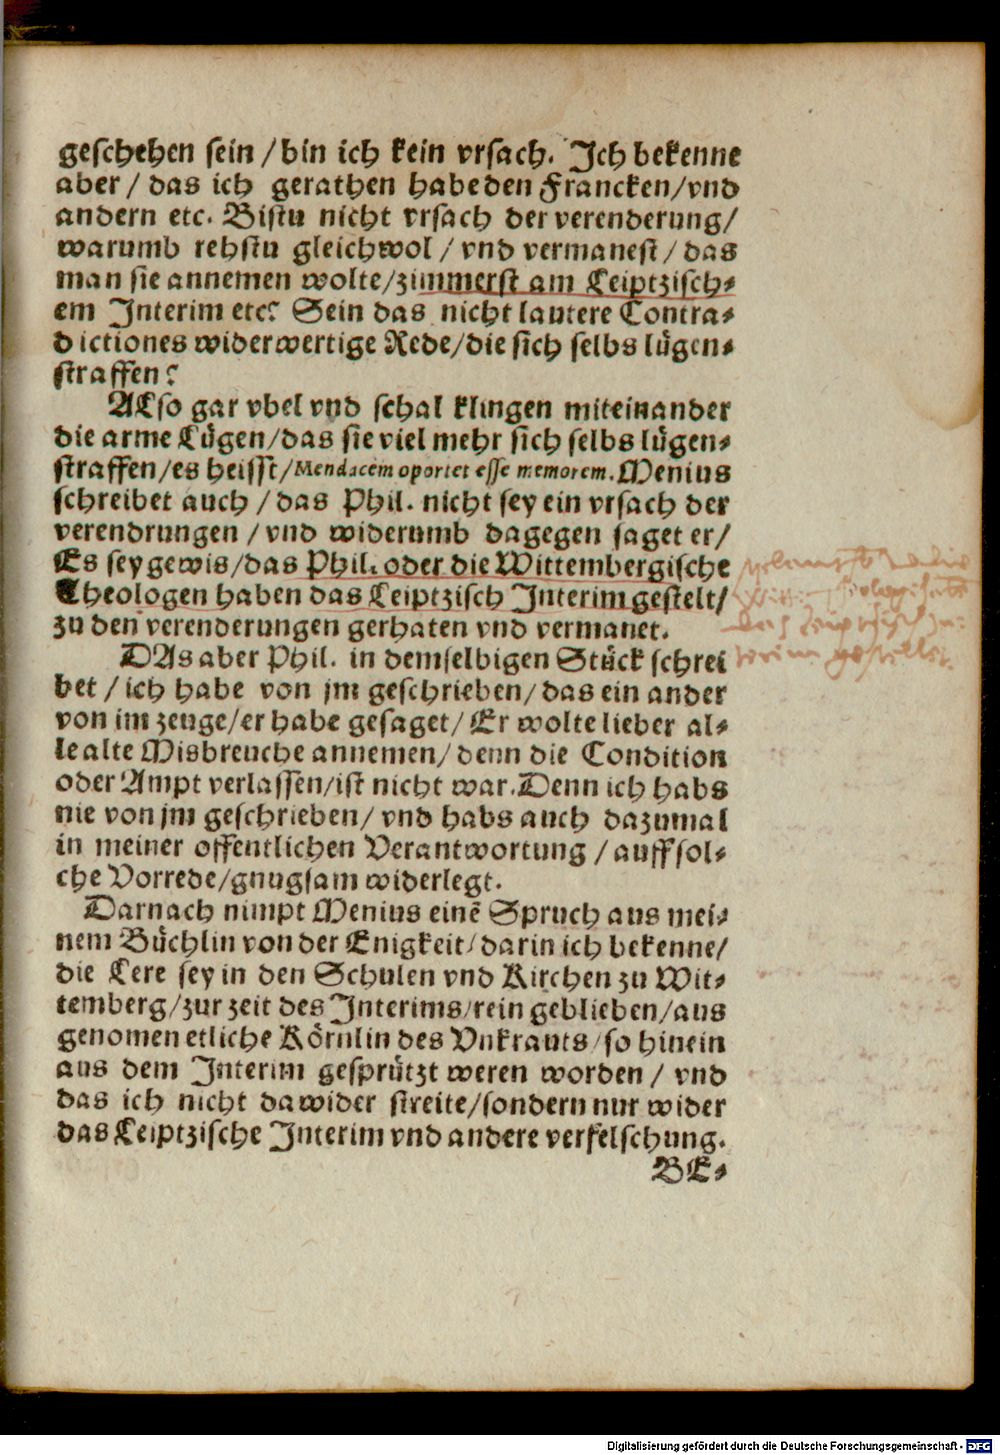 geschehen sein / bin ich kein vrsach. Ich bekenne
aber / das ich gerathen habe den Francken / vnd
andern etc. Bistu nicht vrsach der verenderung /
warumb rehstu gleichwol / vnd vermanest / das
man sie annemen wolte / zimmerst am Leiptzisch⸗
em Interim etc? Sein das nicht lautere Contra⸗
dictiones widerwertige Rede / die sich selbs lügen⸗
straffen?
ALso gar vbel vnd schal klingen miteinander
die arme Lügen / das sie viel mehr sich selbs lügen⸗
straffen / es heisst / Mendacem oportet esse memorem. Menius
schreibet auch / das Phil. nicht sey ein vrsach der
verendrungen / vnd widerumb dagegen saget er /
Es sey gewis / das Phil. oder die Wittembergische
Theologen haben das Leiptzisch Interim gestelt /
zu den verenderungen gerhaten vnd vermanet.
DAs aber Phil. in demselbigen Stück schrei
bet / ich habe von jm geschrieben / das ein ander
von im zeuge / er habe gesaget / Er wolte lieber al⸗
le alte Misbreuche annemen / denn die Condition
oder Ampt verlassen / ist nicht war. Denn ich habs
nie von jm geschrieben / vnd habs auch dazumal
in meiner offentlichen Verantwortung / auff sol⸗
che Vorrede / gnugsam widerlegt.
Darnach nimpt Menius einē Spruch aus mei⸗
nem Büchlin von der Enigkeit / darin ich bekenne /
die Lere sey in den Schulen vnd Kirchen zu Wit⸗
temberg / zur zeit des Interims / rein geblieben / aus
genomen etliche Körnlin des Vnkrauts / so hinein
aus dem Interim gesprützt weren worden / vnd
das ich nicht dawider streite / sondern nur wider
das Leiptzische Interim vnd andere verfelschung.
BE⸗
Digitalisierung gefördert durch die Deutsche Forschungsgemeinschaft - DFG